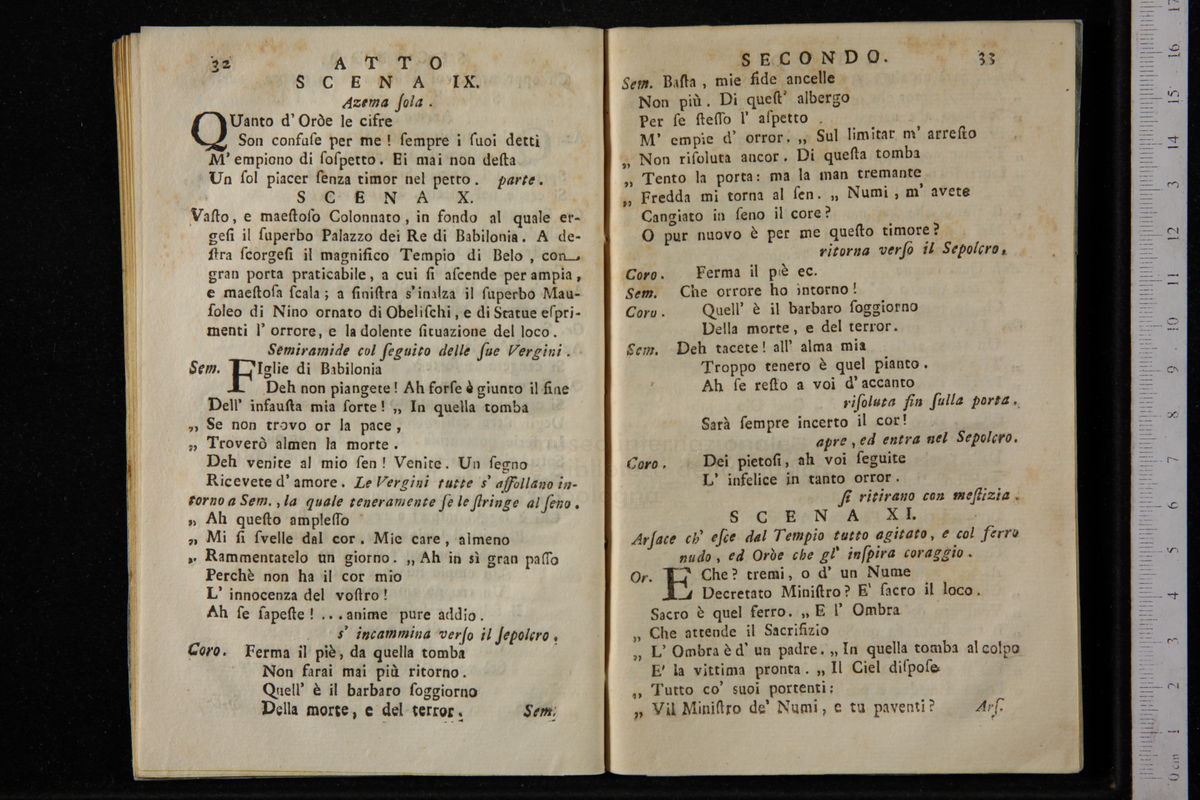 32 ATTO
SCENA IX.
Azema ſola.
QUanto d' Oròe le cifre
Son confuſe per me! ſempre i ſuoi detti
M' empiono di ſoſpetto. Ei mai non deſta
Un ſol piacer ſenza timor nel petto. parte.
SCENA X.
Vaſto, e maeſtoſo Colonnato, in fondo al quale er-
geſi il ſuperbo Palazzo dei Re di Babilonia. A de-
ſtra ſcorgeſi il magnifico Tempio di Belo, con
gran porta praticabile, a cui ſi aſcende per ampia,
e maeſtoſa ſcala; a ſiniſtra s'inalza il ſuperbo Mau-
ſoleo di Nino ornato di Obeliſchi, e di Statue eſpri-
menti l' orrore, e la dolente ſituazione del loco.
Semiramide col ſeguito delle ſue Vergini.
Sem. FIglie di Babilonia
Deh non piangete! Ah forſe è giunto il fine
Dell' infauſta mia ſorte! „ In quella tomba
„ Se non trovo or la pace,
„ Troverò almen la morte.
Deh venite al mio ſen! Venite. Un ſegno
Ricevete d' amore. Le Vergini tutte s' affollano in-
torno a Sem., la quale teneramente ſe le ſtringe al ſeno.
„ Ah queſto ampleſſo
„ Mi ſi ſvelle dal cor. Mie care, almeno
„ Rammentatelo un giorno. „ Ah in sì gran paſſo
Perchè non ha il cor mio
L' innocenza del voſtro!
Ah ſe ſapeſte! ... anime pure addio.
s' incammina verſo il ſepolcro.
Coro. Ferma il piè, da quella tomba
Non farai mai più ritorno.
Quell' è il barbaro ſoggiorno
Della morte, e del terror.
Sem.
SECONDO. 33
Sem. Baſta, mie fide ancelle
Non più. Di queſt' albergo
Per ſe ſteſſo l' aſpetto
M' empie d' orror. „ Sul limitar m' arreſto
„ Non riſoluta ancor. Di queſta tomba
„ Tento la porta: ma la man tremante
„ Fredda mi torna al ſen. „ Numi, m' avete
Cangiato in ſeno il core?
O pur nuovo è per me queſto timore?
ritorna verſo il Sepolcro.
Coro. Ferma il piè ec.
Sem. Che orrore ho intorno!
Coro. Quell' è il barbaro ſoggiorno
Della morte, e del terror.
Sem. Deh tacete! all' alma mia
Troppo tenero è quel pianto.
Ah ſe reſto a voi d' accanto
riſoluta fin ſulla porta.
Sarà ſempre incerto il cor!
apre, ed entra nel Sepolcro.
Coro. Dei pietoſi, ah voi ſeguite
L' infelice in tanto orror.
ſi ritirano con meſtizia.
SCENA XI.
Arſace ch' eſce dal Tempio tutto agitato, e col ferro
nudo, ed Oròe che gl' inſpira coraggio.
Or. E Che? tremi, o d' un Nume
Decretato Miniſtro? E' ſacro il loco.
Sacro è quel ferro. „ E l' Ombra
„ Che attende il Sacrifizio
„ L' Ombra è d' un padre. „ In quella tomba al colpo
E' la vittima pronta. „ Il Ciel diſpoſe
„ Tutto co' ſuoi portenti:
„ Vil Miniſtro de' Numi, e tu paventi?
Arſ.
0 cm 1 2 3 4 5 6 7 8 9 10 11 12 13 14 15 16 17